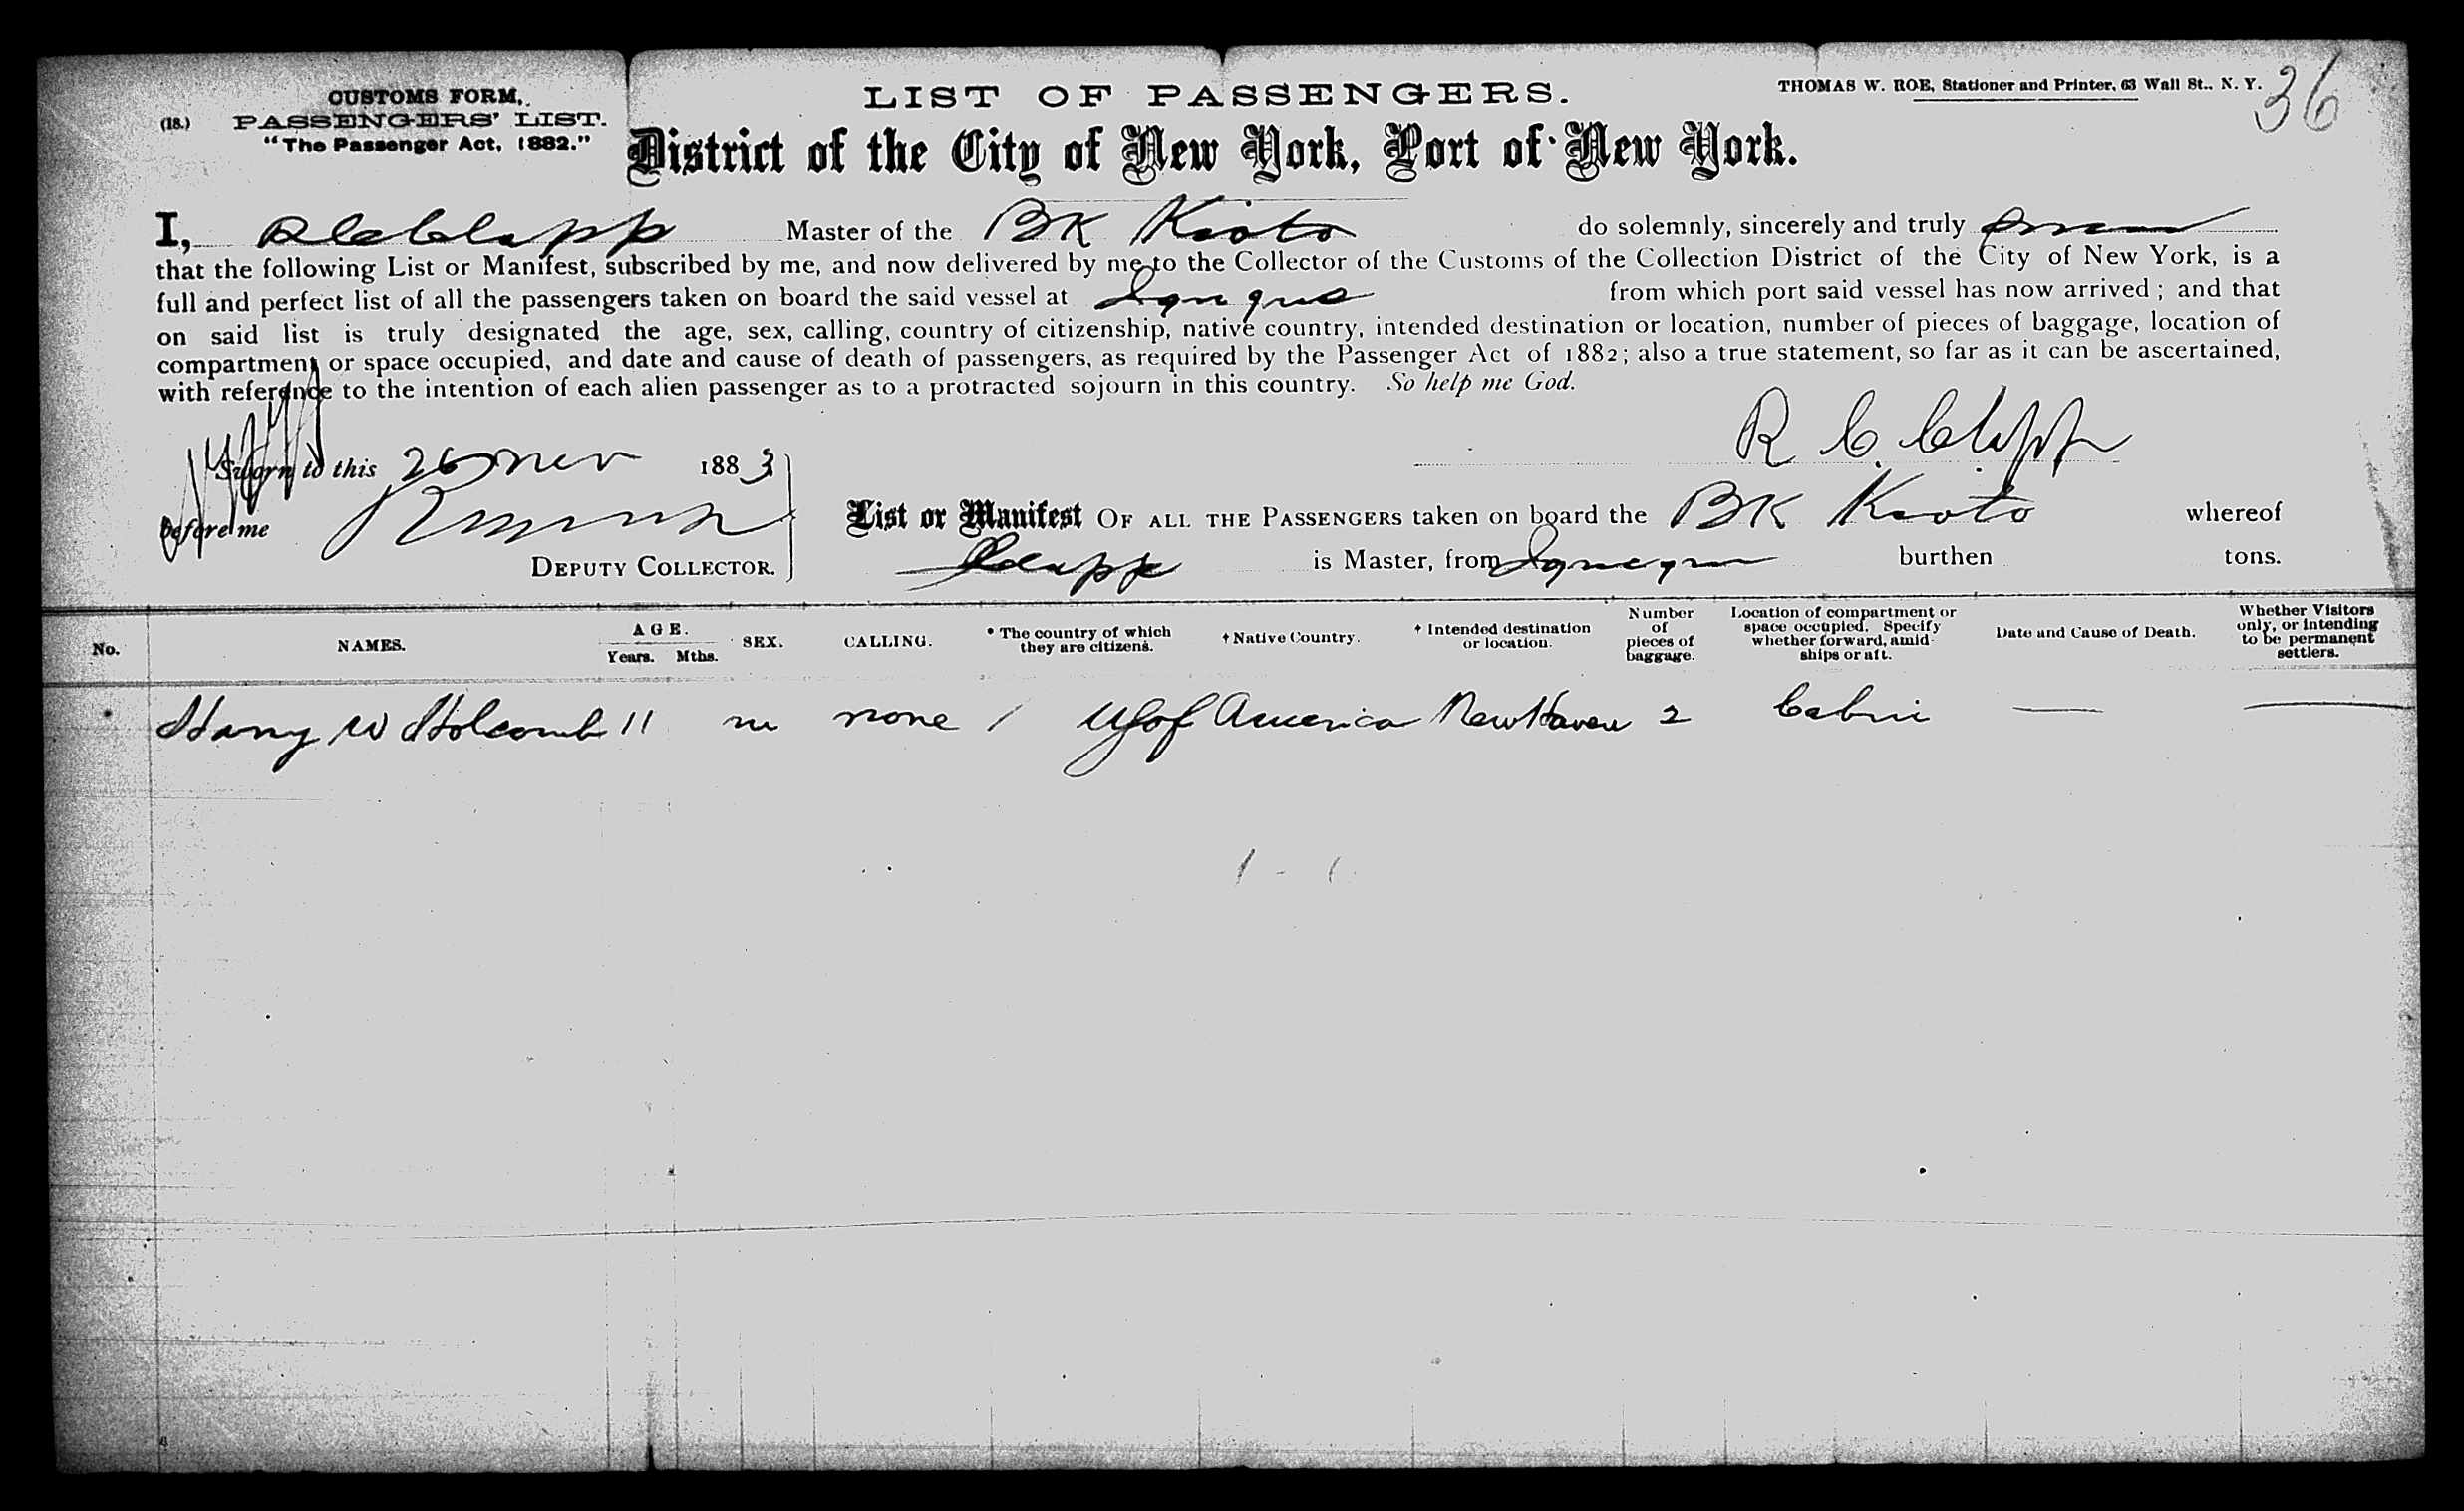 36
CUSTOMS FORM,
(18.) PASSENGERS' LIST.
"The Passenger Act, 1882."
LIST OF PASSENGERS.
THOMAS W. ROE, Stationer and Printer, 63 Wall St.. N. Y.
District of the City of New York, Port of New York.
I, R C Clapp Master of the BK Kioto do solemnly, sincerely and truly
that the following List or Manifest, subscribed by me, and now delivered by me to the Collector of the Customs of the Collection District of the City of New York, is a
full and perfect list of all the passengers taken on board the said vessel at from which port said vessel has now arrived; and that
on said list is truly designated the age, sex, calling, country of citizenship, native country, intended destination or location, number of pieces of baggage, location of
compartment or space occupied, and date and cause of death of passengers, as required by the Passenger Act of 1882; also a true statement, so far as it can be ascertained,
with reference to the intention of each alien passenger as to a protracted sojourn in this country. So help me God.
R C. Clapp
Sworn to this 26 Nov 1883
before me
DEPUTY COLLECTOR.
List or Manifest OF ALL THE PASSENGERS taken on board the BK Kioto whereof
Clapp is Master, from burthen tons.
No. NAMES. AGE. Years. Mths. SEX. CALLING. * The country of which they are citizens. † Native Country. † Intended destination or location. Number of pieces of baggage. Location of compartment or space occupied. Specify whether forward, amidships or aft. Date and Cause of Death. Whether Visitors only, or intending to be permanent settlers.
Harry W Holcomb 11 m none / US of America New Haven 2 Cabin — —
1 - 1